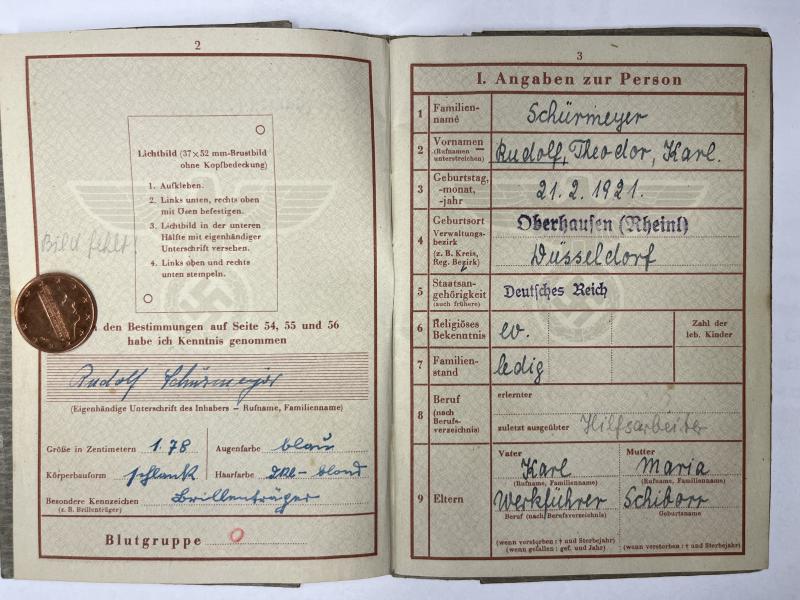 2
Lichtbild (37×52 mm-Brustbild
ohne Kopfbedeckung)
1. Aufkleben.
2. Links unten, rechts oben
mit Ösen befestigen.
3. Lichtbild in der unteren
Hälfte mit eigenhändiger
Unterschrift versehen.
4. Links oben und rechts
unten stempeln.
Bild fehlt!
den Bestimmungen auf Seite 54, 55 und 56
habe ich Kenntnis genommen
Rudolf Schürmeyer
(Eigenhändige Unterschrift des Inhabers – Rufname, Familienname)
Größe in Zentimetern 1.78 Augenfarbe blau
Körperbauform schlank Haarfarbe Dkl-blond
Besondere Kennzeichen Brillenträger
(z. B. Brillenträger)
Blutgruppe O
3
I. Angaben zur Person
1 Familien-
name Schürmeyer
2 Vornamen
(Rufnamen
unterstreichen) Rudolf, Theodor, Karl.
3 Geburtstag,
-monat,
-jahr 21.2.1921.
4 Geburtsort Oberhausen (Rheinl)
Verwaltungs-
bezirk
(z. B. Kreis,
Reg. Bezirk) Düsseldorf
5 Staatsan-
gehörigkeit
(auch frühere) Deutsches Reich
6 Religiöses
Bekenntnis ev. Zahl der
leb. Kinder
7 Familien-
stand ledig
8 Beruf
(nach
Berufs-
verzeichnis) erlernter
zuletzt ausgeübter Hilfsarbeiter
9 Eltern
Vater Mutter
Karl Maria
(Rufname, Familienname) (Rufname, Familienname)
Werkführer Schiborr
Beruf (nach Berufsverzeichnis) Geburtsname
(wenn verstorben: † und Sterbejahr)
(wenn gefallen: gef. und Jahr) (wenn verstorben: † und Sterbejahr)